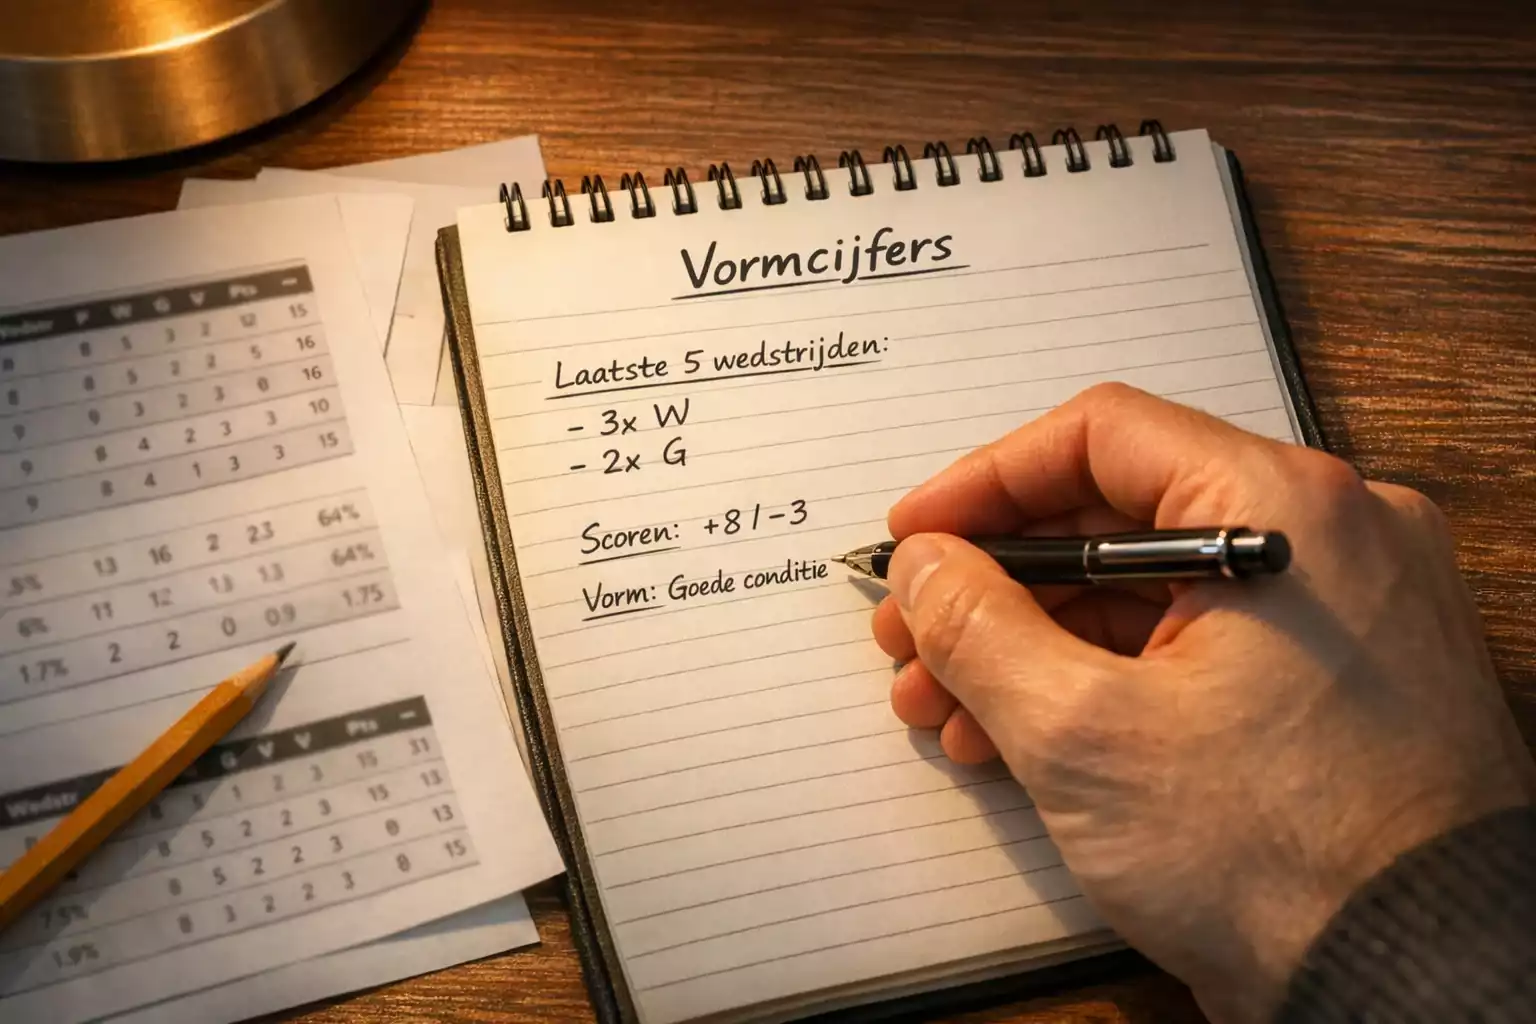 Vormcijfers
Laatste 5 wedstrijden:
- 3x W
- 2x G
Scoren: +8 / -3
Vorm: Goede conditie
P W G V Pts –
8 5 3 2 12 15
8 5 2 2 5 16
9 9 3 2 3 0 16
9 8 4 2 3 3 10
9 8 4 1 3 3 15
13 16 2 23 64%
6% 11 12 13 13 64%
1.7% 2 2 0 0.9 1.75
Wedstr G V V Pts –
5 1 2 3 15 31
8 5 2 2 3 15 13
8 5 2 2 3 0 13
7.5% 8 3 2 2 3 0 15
1.9%